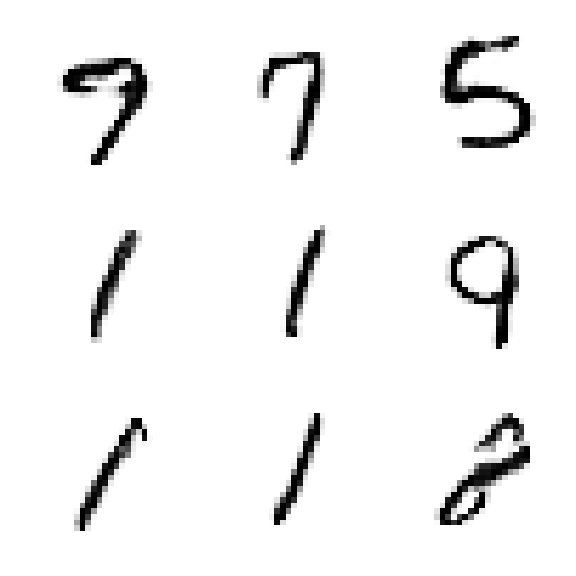 9 7 5
1 1 9
1 1 8